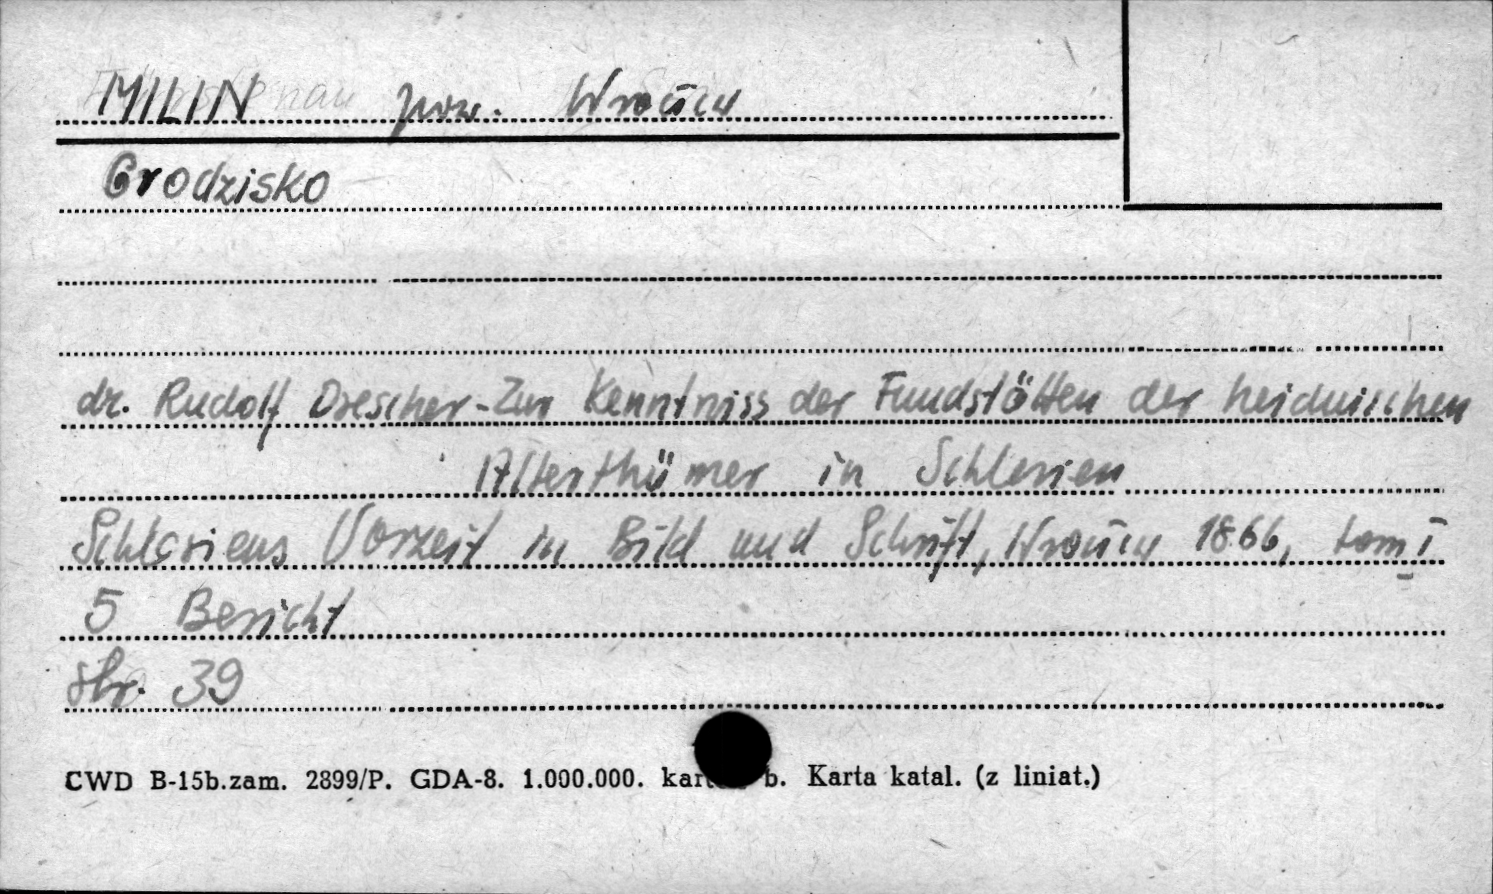 MILIN pow. Wrocław
Grodzisko
dr. Rudolf Drescher - Zur Kenntniss der Fundstätten der heidnischen
Alterthümer in Schlesien
Schlesiens Vorzeit in Bild und Schrift, Wrocław 1866, tom I
5 Bericht
str. 39
CWD B-15b.zam. 2899/P. GDA-8. 1.000.000. b. Karta katal. (z liniat.)